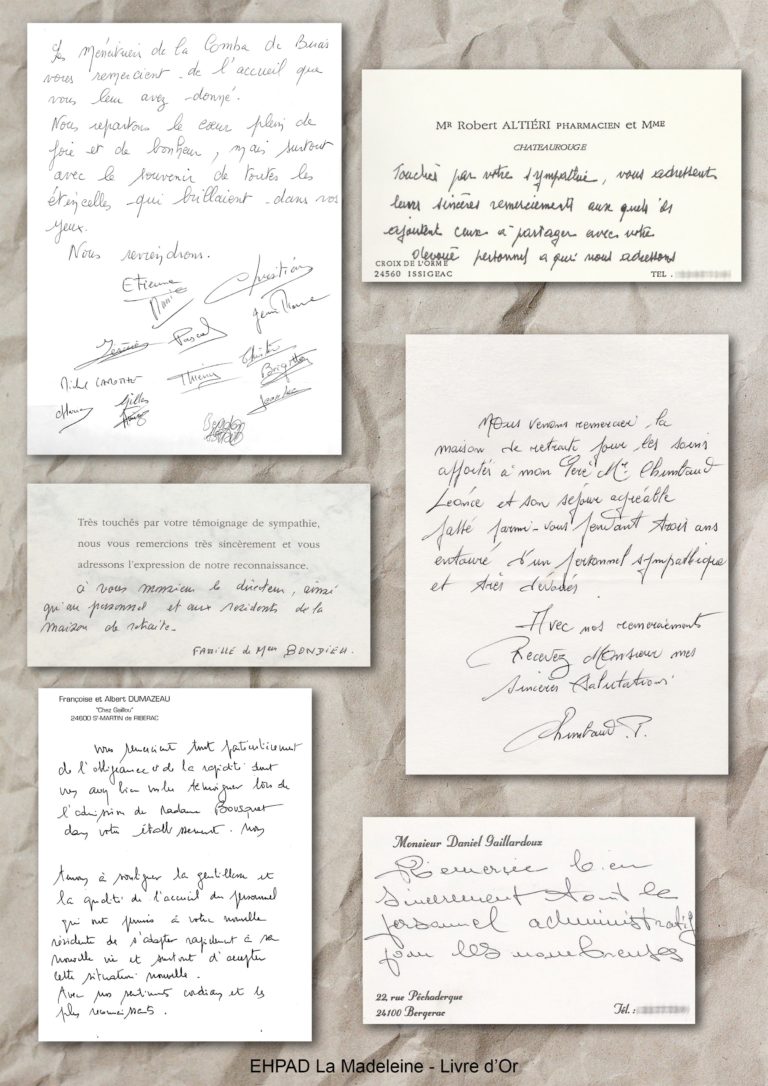 Les Ménétriers de la Comba de Buais
vous remercient de l'accueil que
vous leur avez donné.
Nous repartons le cœur plein de
joie et de bonheur, mais surtout
avec le souvenir de toutes les
étincelles qui brillaient dans vos
yeux.
Nous reviendrons.
Etienne
Christian
Pascal
Thierry
Brigitte
Gilles
MR Robert ALTIÉRI PHARMACIEN ET MME
CHATEAUROUGE
Touchés par votre sympathie, vous adressent
leurs sincères remerciements aux quels ils
ajoutent ceux à partager avec votre
dévoué personnel a qui nous adressons
CROIX DE L'ORME
24560 ISSIGEAC
TEL.
Nous venons remercier la
maison de retraite pour les soins
apportés à mon Père Mr Chimbaud
Léonce et son séjour agréable
passé parmi-vous pendant trois ans
entouré d'un personnel sympathique
et très dévoués
Avec nos remerciements
Recevez Monsieur mes
sincères salutations
Chimbaud P.
Très touchés par votre témoignage de sympathie,
nous vous remercions très sincèrement et vous
adressons l'expression de notre reconnaissance.
à vous monsieur le directeur, ainsi
qu'au personnel et aux residents de la
maison de retraite.
FAMILLE de Mme BONDIEU.
Françoise et Albert DUMAZEAU
"Chez Gaillou"
24600 St-MARTIN de RIBERAC
Vous remercient tout particulièrement
de l'obligeance et de la rapidité dont
vous avez bien voulu témoigner lors de
l'admission de Madame Bousquet
dans votre établissement. Nous
tenons à souligner la gentillesse et
la qualité de l'accueil du personnel
qui ont permis à votre nouvelle
résidente de s'adapter rapidement à sa
nouvelle vie et surtout d'accepter
cette situation nouvelle.
Avec nos sentiments cordiaux et les
plus reconnaissants.
Monsieur Daniel Gaillardoux
Remercie bien
sincèrement tout le
personnel administratif
pour les nombreuses
22, rue Pécharlerque
24100 Bergerac
Tél. :
EHPAD La Madeleine - Livre d'Or